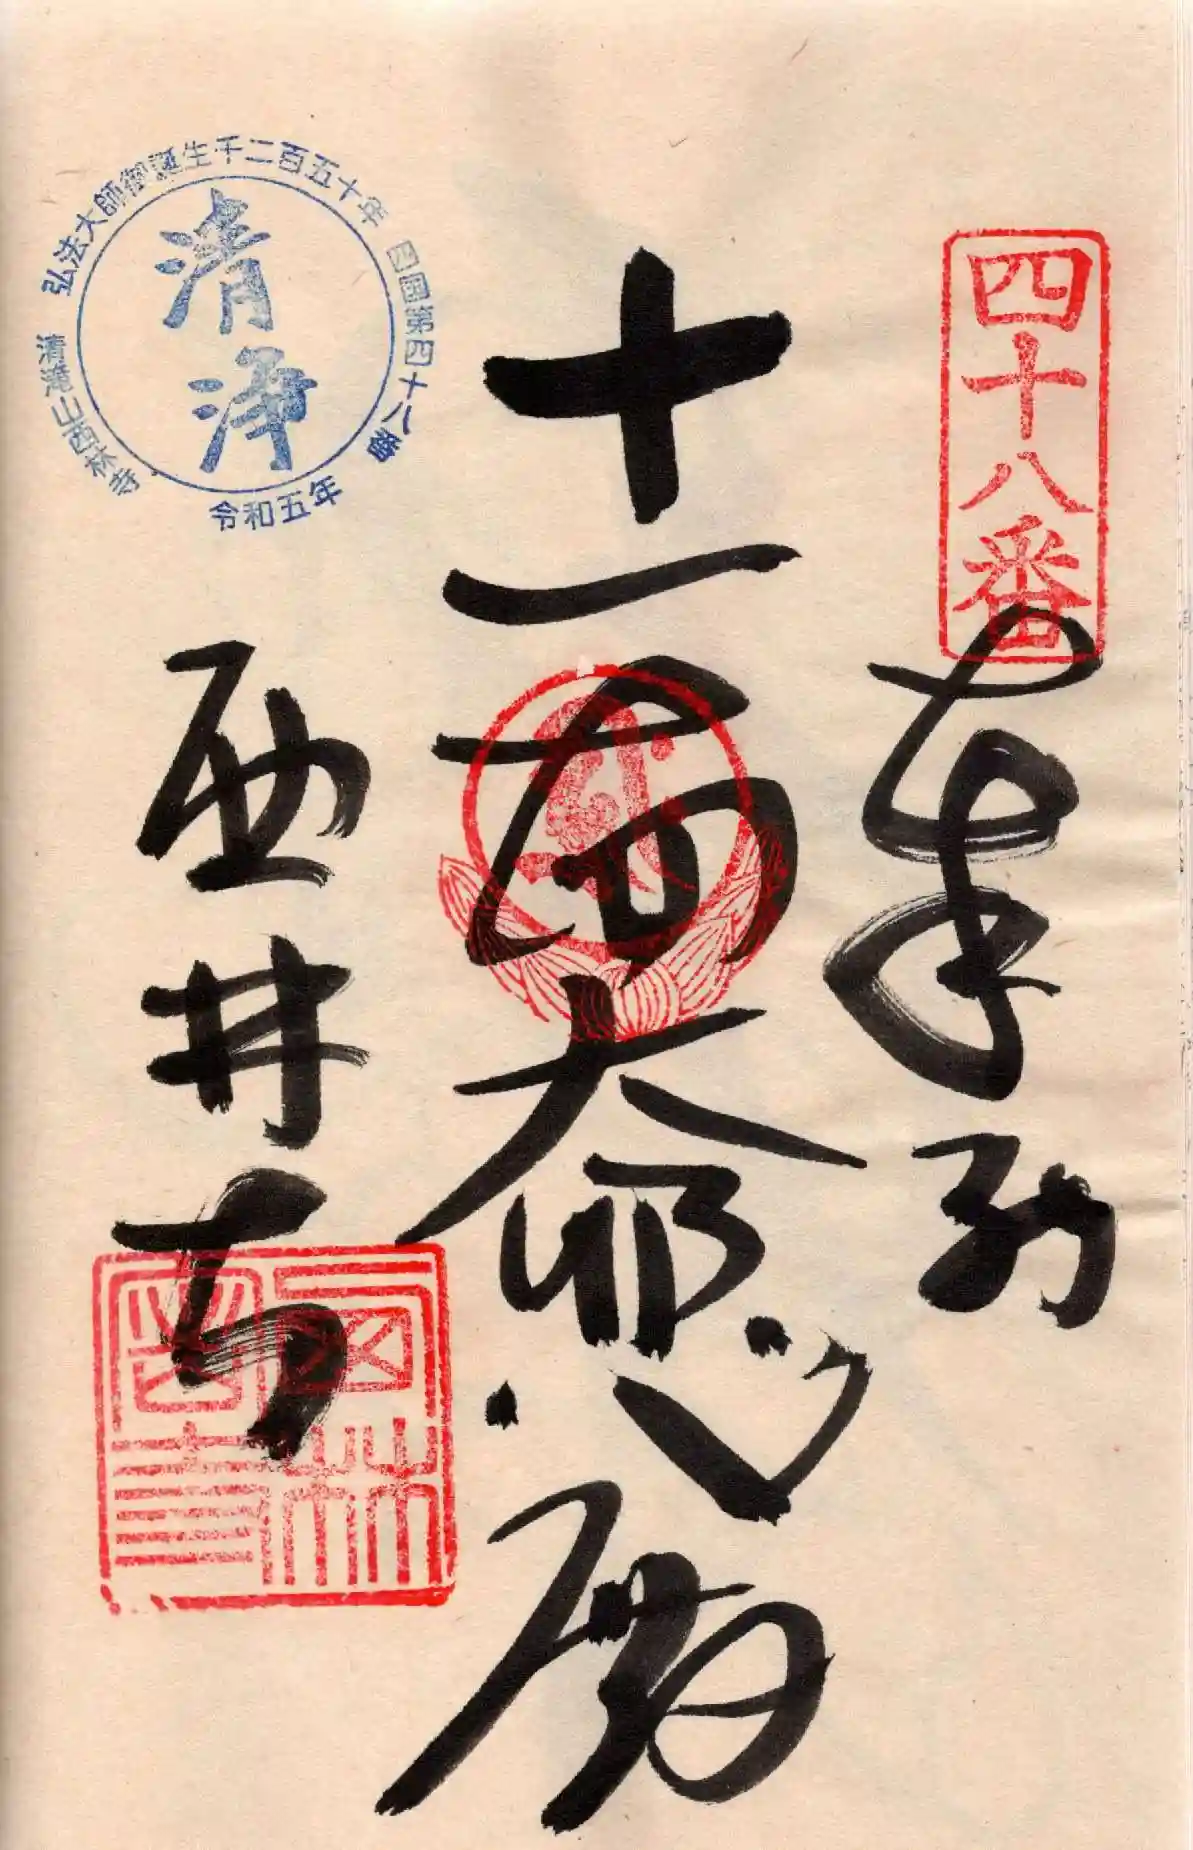 四十八番
奉納
十一面大悲殿
西林寺
弘法大師御誕生千二百五十年
四国第四十八番
清滝山西林寺
令和五年
清浄